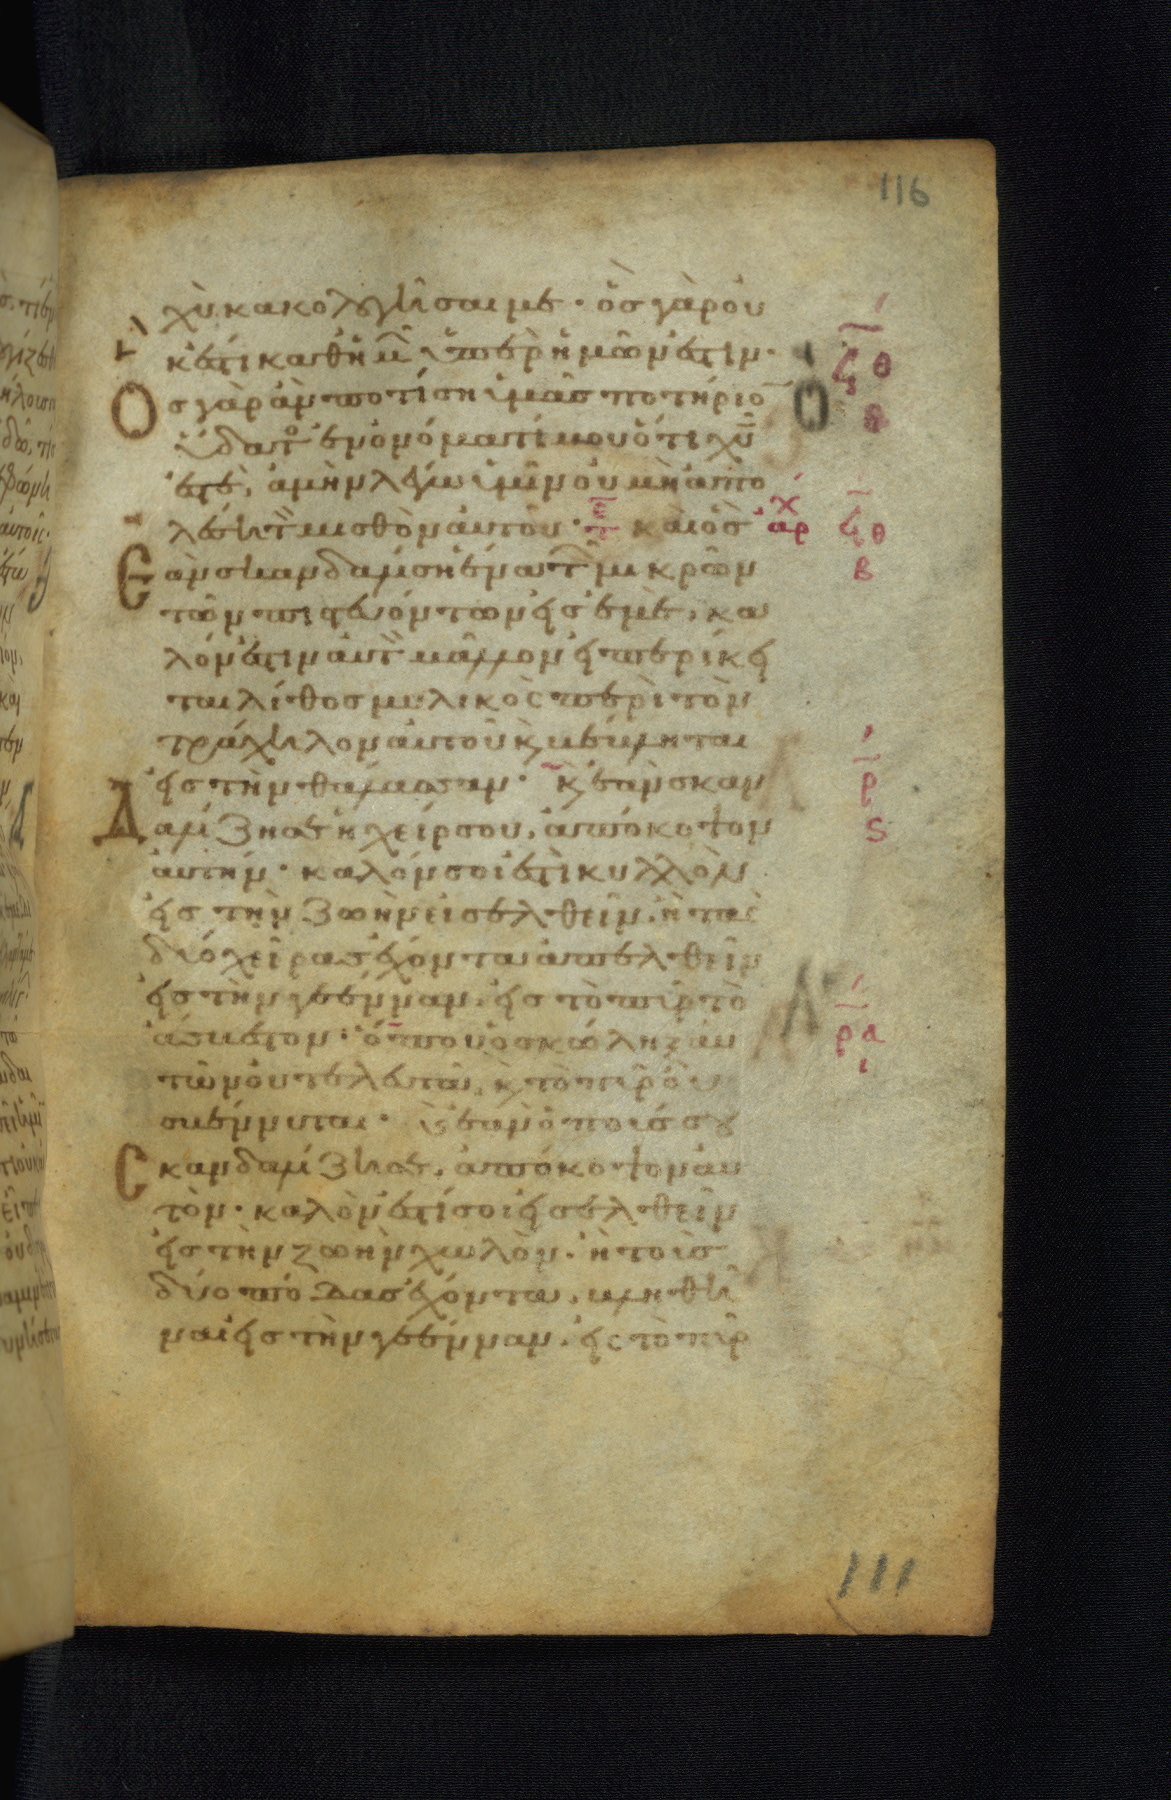 116
χὺ κακολογῆσαί με· ὃς γὰρ οὐ
κ ἔστι καθ ἡμῶν ὑπερ ἡμῶν ἐστιν·
Ος γὰρ ἂν ποτίση ὑμᾶς ποτήριον
ὕδατος ἐν ὀνόματί μου ὅτι χῦ
ἐστε, ἀμὴν λέγω ὑμῖν οὐ μὴ ἀπο
λέση τὸν μισθὸν αὐτοῦ· καὶ ὃς
Εὰν σκανδαλίση ἕνα τῶν μικρῶν
τῶν πιστευόντων εἰς ἐμὲ, κα
λόν ἐστιν αὐτῶ μᾶλλον εἰ περίκει
ται λίθος μυλικὸς περὶ τὸν
τράχηλον αὐτοῦ κ βέβληται
εἰς τὴν θάλασσαν· κ ἐὰν σκαν
Δαλίζη σε ἡ χείρ σου, ἀπόκοψον
αὐτήν· καλόν σοι ἐστὶ κυλλὸν
εἰς τὴν ζωὴν εἰσελθεῖν, ἢ τὰς
δύο χεῖρας ἔχοντα ἀπελθεῖν
εἰς τὴν γέενναν, εἰς τὸ πῦρ τὸ
ἄσβεστον· ὅπου ὁ σκώληξ αὐ
τῶν οὐ τελευτᾶ, κ τὸ πῦρ οὐ
σβέννυται· κ ἐὰν ὁ ποῦς σου
Σκανδαλίζη σε, ἀπόκοψον αὐ
τόν· καλόν ἐστί σοι εἰσελθεῖν
εἰς τὴν ζωὴν χωλὸν, ἢ τοὺς
δύο πόδας ἔχοντα, βληθῆ
ναι εἰς τὴν γέενναν, εἰς τὸ πῦρ
111